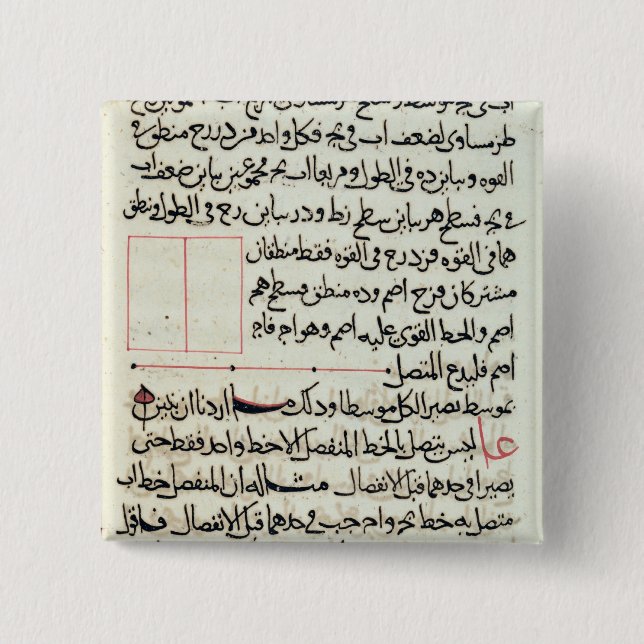 طز مساوى لضعف اب فى بج فكل واحد من د زح منطق فى
القوه ومباين ده فى الطول ومربعا اب بج مجموعين مباين ضعف اب
فى بج فسطح هر مباين سطح زط و در مباين رح فى الطول ومنطق
هما فى القوه فزد رح فى القوه فقط منطقان
مشتركان فزح اصم و ده منطق فسطح هم
اصم والخط القوى عليه اصم وهو اج فاج
اصم فليدع المتصل
بموسط يصير الكل موسطا وذلك اردنا ان نبين
ليس يتصل بالخط المنفصل الا خط واحد فقط حتى
يصيرا فى حدهما قبل الانفصال مثاله ان المنفصل خط اب
متصل به خط بج و اج جب فى حدهما قبل الانفصال فاقول